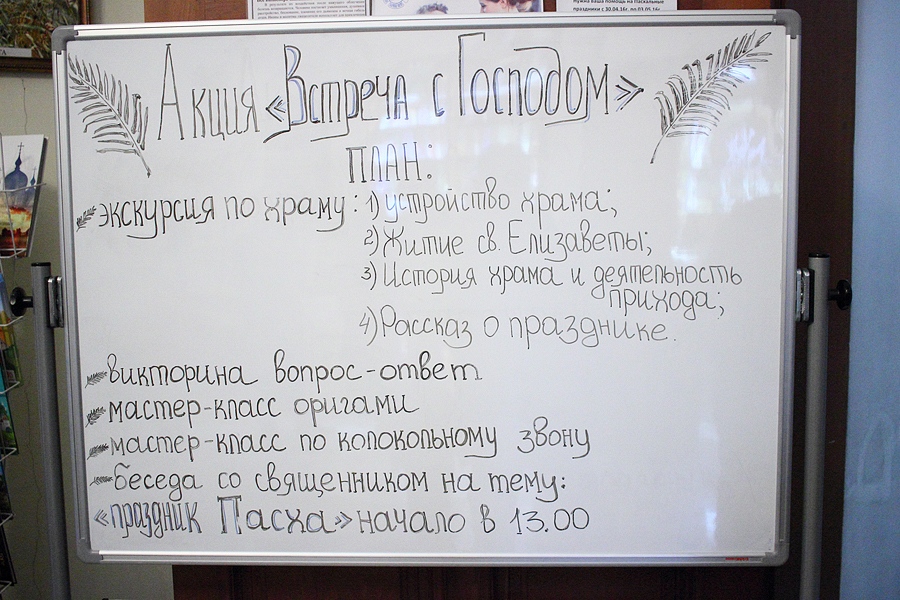 Нужна ваша помощь на Пасхальные
праздники с 30.04.16г. по 03.05.16г.
Акция «Встреча с Господом»
ПЛАН:
экскурсия по храму: 1) устройство храма;
2) Житие св. Елизаветы;
3) История храма и деятельность
прихода;
4) Рассказ о празднике.
викторина вопрос-ответ
мастер-класс оригами
мастер-класс по колокольному звону
беседа со священником на тему:
«праздник Пасха» начало в 13.00